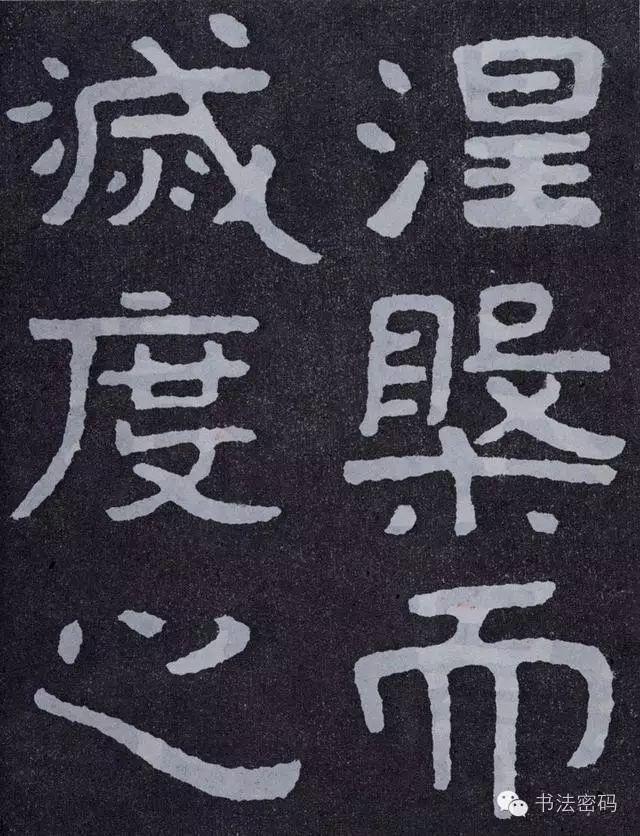 涅槃而
滅度之
书法密码